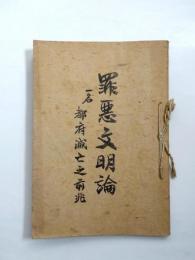 罪悪文明論
一名 都府滅亡之前兆